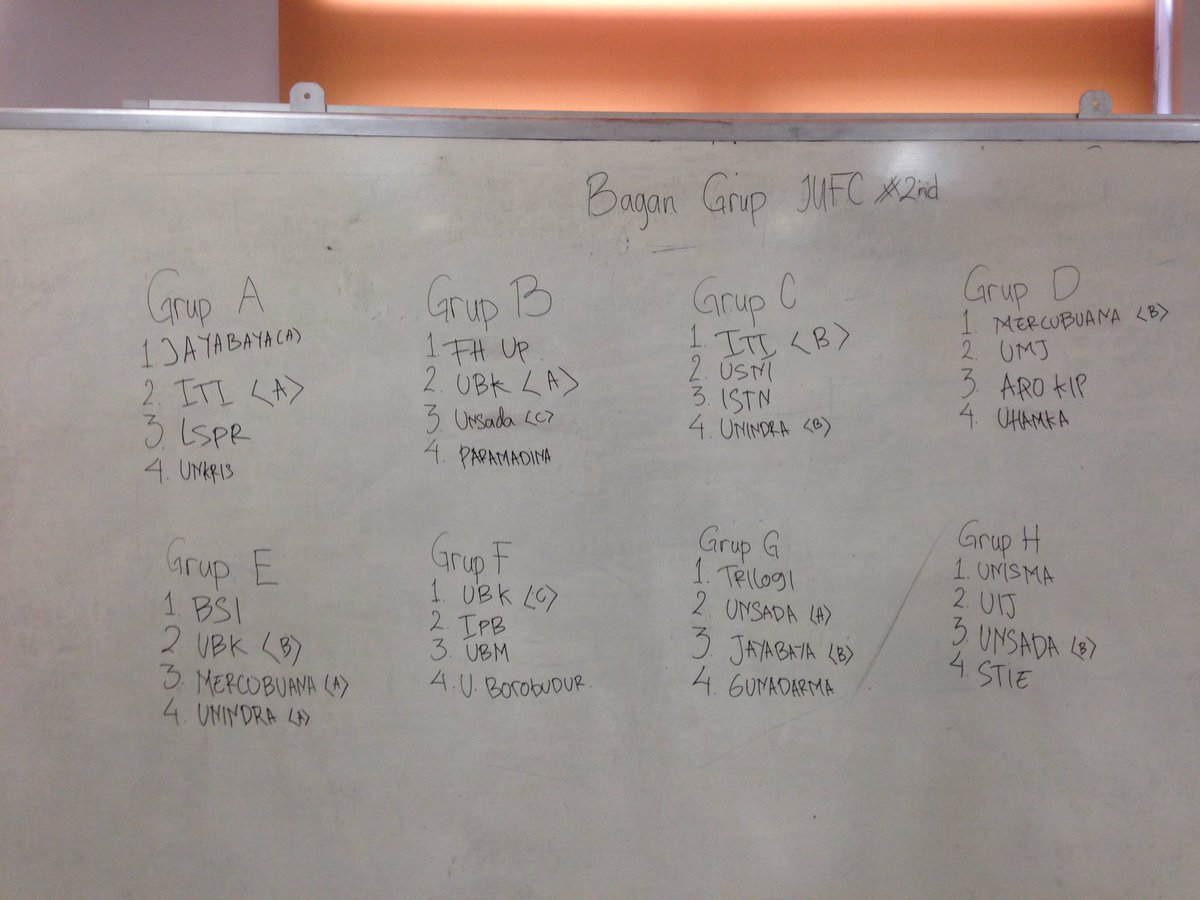 Bagan Grup JUFC #2nd
Grup A
1 JAYABAYA (A)
2. ITI <A>
3. LSPR
4. UNKRIS
Grup B
1. FH UP
2. UBK <A>
3. Unsada <C>
4. PARAMADINA
Grup C
1. ITI <B>
2. USNI
3. ISTN
4. UNINDRA <B>
Grup D
1. MERCUBUANA <B>
2. UMJ
3. ARO KIP
4. UHAMKA
Grup E
1. BSI
2. UBK <B>
3. MERCUBUANA <A>
4. UNINDRA <A>
Grup F
1. UBK <C>
2. IPB
3. UBM
4. U. Borobudur.
Grup G
1. TRILOGI
2. UNSADA <A>
3. JAYABAYA <B>
4. GUNADARMA
Grup H
1. UNISMA
2. UIJ
3. UNSADA <B>
4. STIE